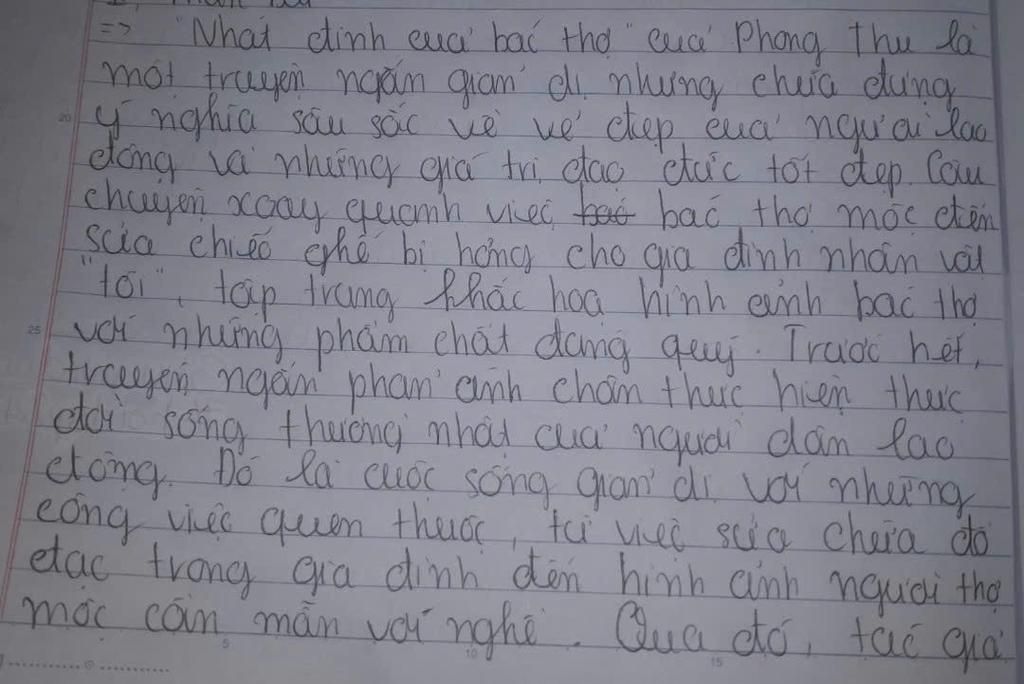 => "Nhát đinh của bác thợ" của Phong Thu là
một truyện ngắn giản dị nhưng chứa đựng
ý nghĩa sâu sắc về vẻ đẹp của người lao
động và những giá trị đạo đức tốt đẹp. Câu
chuyện xoay quanh việc bác bác thợ mộc đến
sửa chiếc ghế bị hỏng cho gia đình nhân vật
"tôi", tập trung khắc họa hình ảnh bác thợ
với những phẩm chất đáng quý. Trước hết,
truyện ngắn phản ánh chân thực hiện thực
đời sống thường nhật của người dân lao
động. Đó là cuộc sống giản dị với những
công việc quen thuộc, từ việc sửa chữa đồ
đạc trong gia đình đến hình ảnh người thợ
mộc cần mẫn với nghề. Qua đó, tác giả
20
25
5
10
15